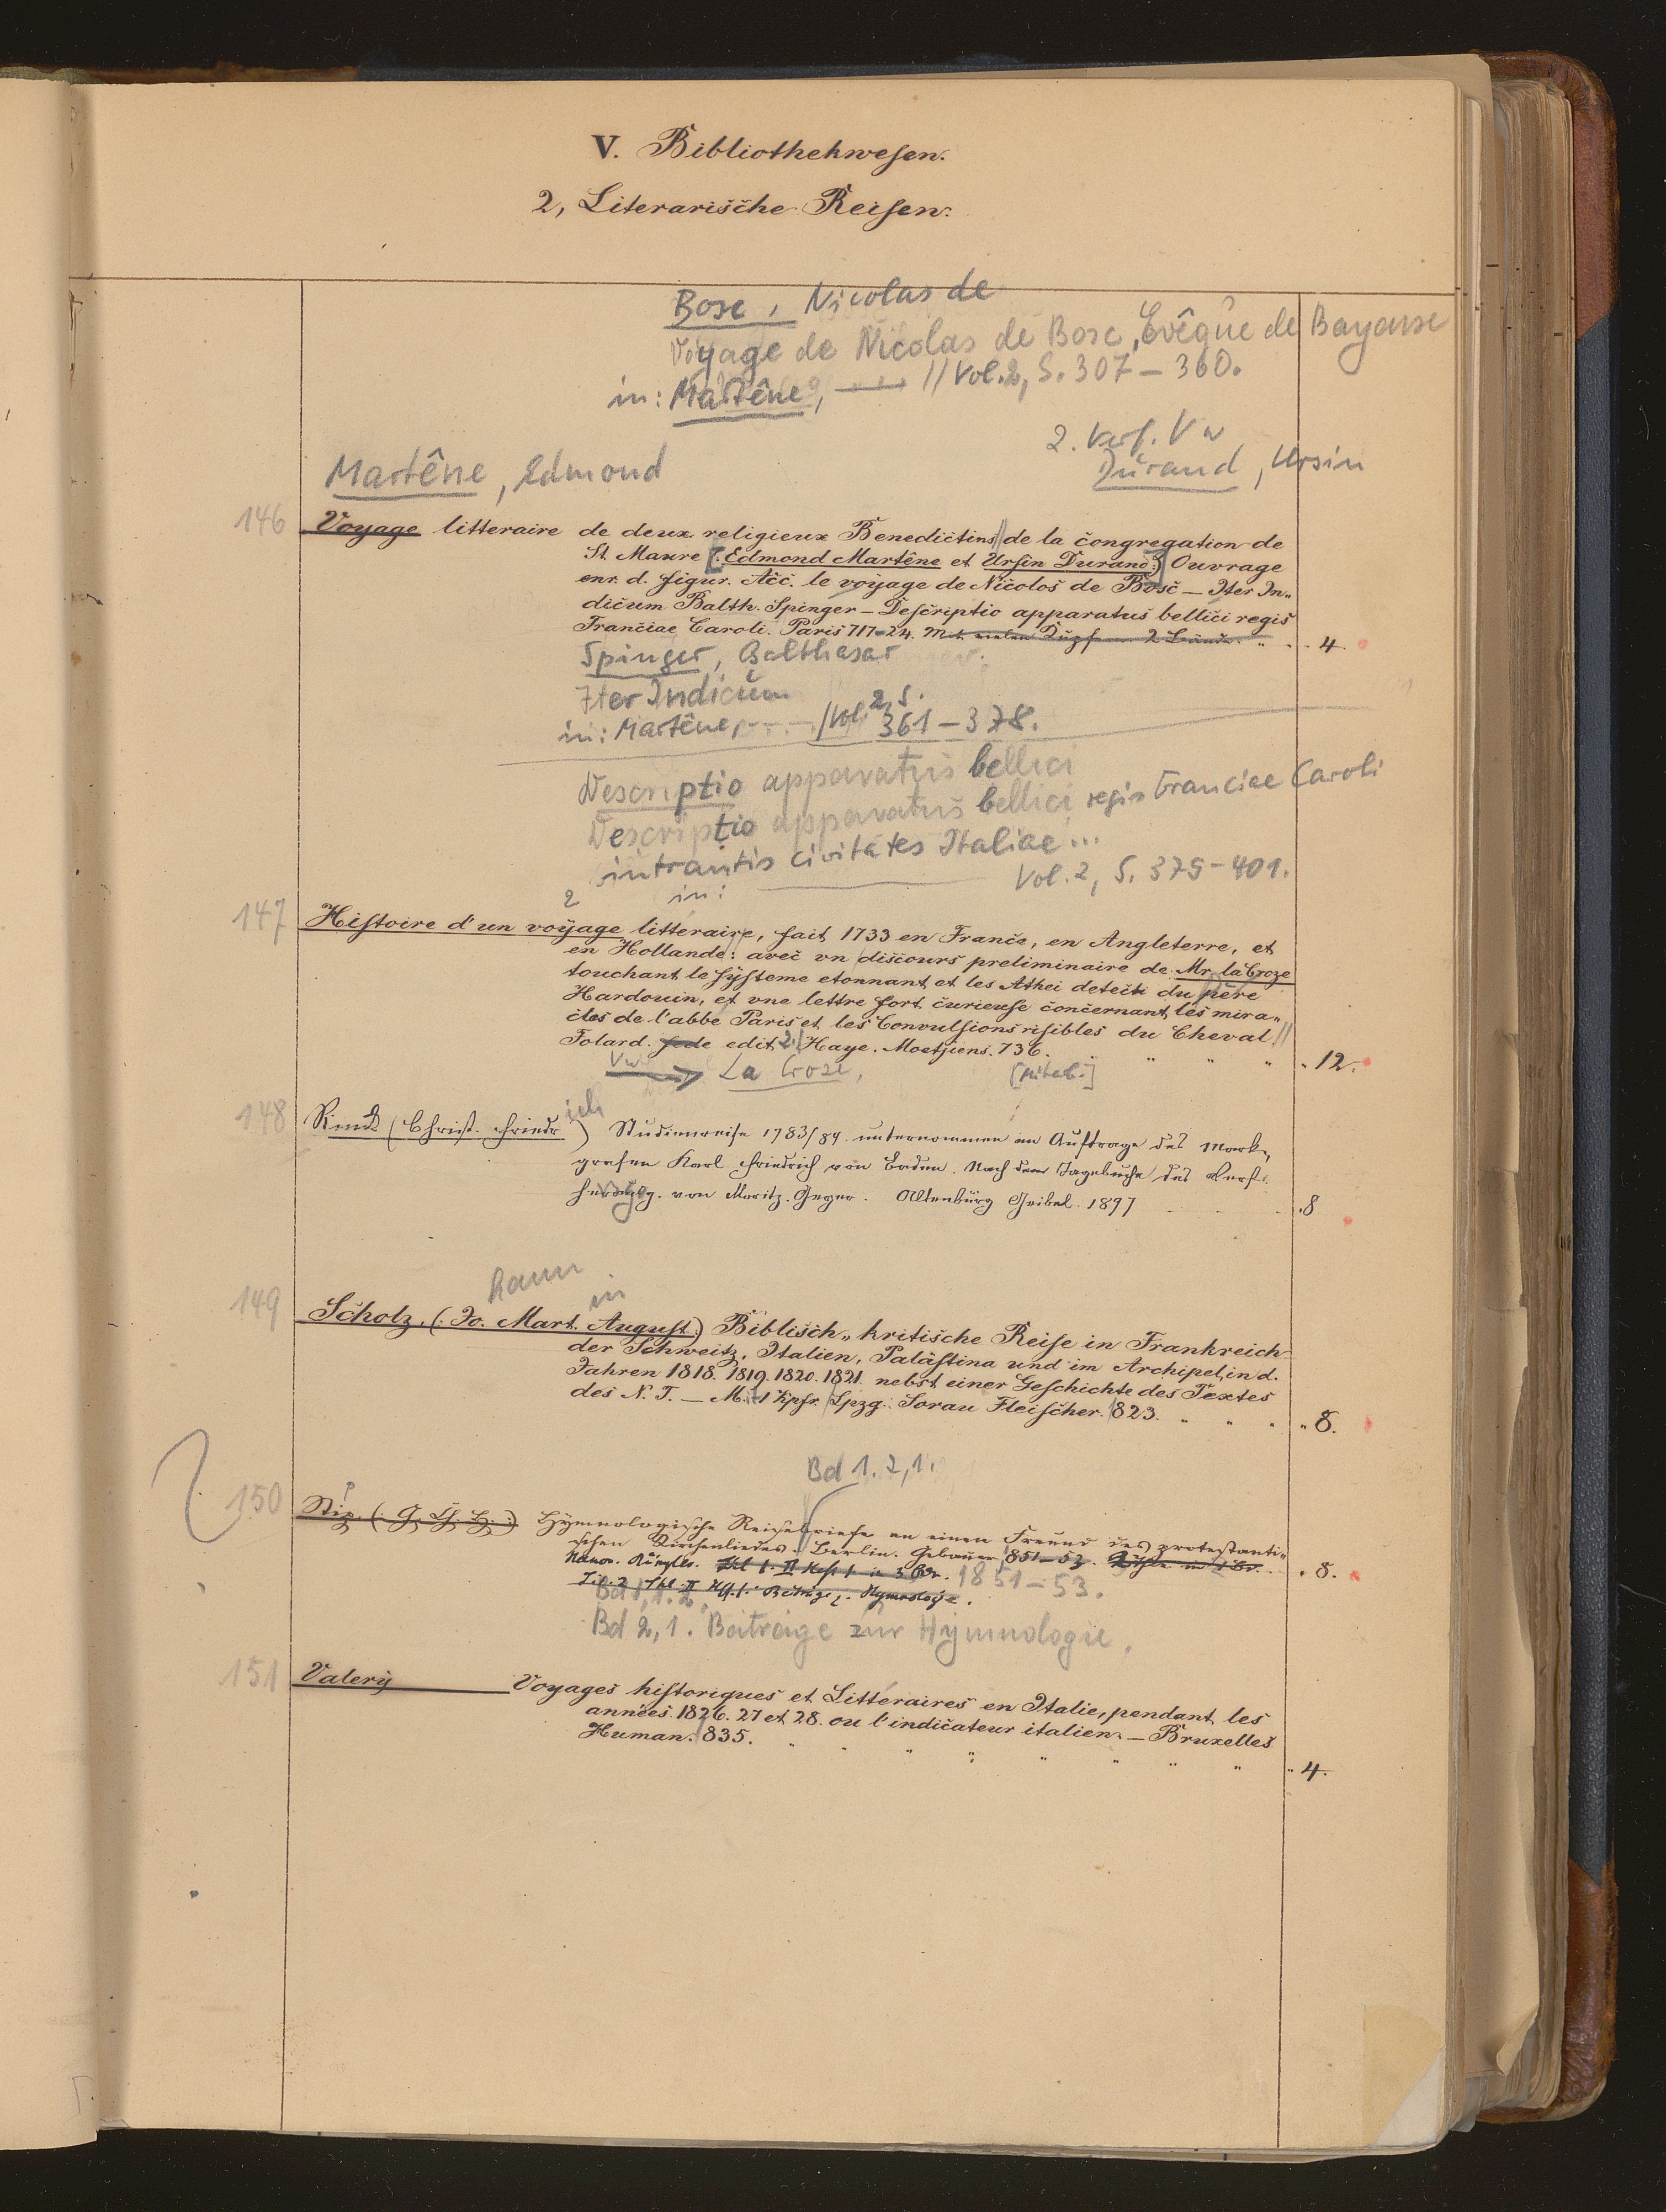 V. Bibliothekwesen.
2, Literarische Reisen.
Bosc, Nicolas de
Voyage de Nicolas de Bosc, Evêque de Bayeuse
in: Martêne, —— // Vol. 2, S. 307 – 360.
2. Verf. Vw
Martêne, Edmond
Durand, Ursin
146 Voyage litteraire de deux religieux Benedictins // de la congregation de
St. Maure [(: Edmond Martêne et Ursin Durand :)] Ouvrage
enr. d. figur. Acc. le voyage de Nicolos de Bosc — Iter In„
dicum Balth. Spinger — Descriptio apparatus bellici regis
Franciae Caroli. Paris 717–24. Mit vielen Kupfern 2 Bände. „ . . 4.
Spinger, Balthasar
Iter Indicum
in: Martêne, - - - / Vol. 2, S. 361 – 378.
Descriptio apparatus bellici
Descriptio apparatus bellici regis Franciae Caroli
intrantis civitates Italiae ...
Vol. 2, S. 379 – 401.
2 in:
147 Histoire d'un voyage litteraire, fait 1733 en France, en Angleterre, et
en Hollande: avec vn discours preliminaire de Mr. la Croze
touchant le systeme etonnant et les Athei detecti du père
Hardouin, et vne lettre fort curieuse concernant les mira„
cles de l'abbé Paris et les Convulsions risibles du Cheval. //
Folard. sede edit. 2. / Haye. Moetjiens. 736. „ „ „ „ . 12.
Vw → La Croze, [Mitarb.]
148 Rinck (Christ. Friedrich) Studienreise 1783/84. unternommen im Auftrage des Mark„
grafen Karl Friedrich von Baden. Nach dem Tagebuche des Verf.
hrsg. von Moritz Geyer. Altenburg Geibel. 1897 . 8
149 Scholz, (: Jo. Mart. August :) Biblisch„ kritische Reise in Frankreich
hann in
der Schweitz, Italien, Palästina und im Archipel, in d.
Jahren 1818. 1819. 1820. 1821. nebst einer Geschichte des Textes
des N. T. — Mit 1 Kpfr. / Lpzg. Sorau Fleischer. 823. „ „ „ „ 8.
Bd 1. 2,1.
150 Stip, (: G. Ch. H. :) Hymnologische Reisebriefe an einen Freund des protestanti„
schen Kirchenliedes. Berlin. Gebauer 1851–53. . 8.
1851 – 53.
Bd 1, 1. 2.
Bd 2, 1. Beiträge zur Hymnologie.
151 Valery —— Voyages historiques et Littéraires en Italie, pendant les
années 1826. 27 et 28. ou l'indicateur italien. — Bruxelles
Human. 835. „ „ „ „ „ „ „ „ „ 4.